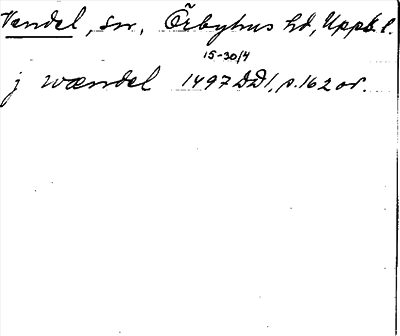 Vendel, sn, Örbyhus hd, Upps. l.
15-30/4
j wændel 1497 DD1, p. 162 or.